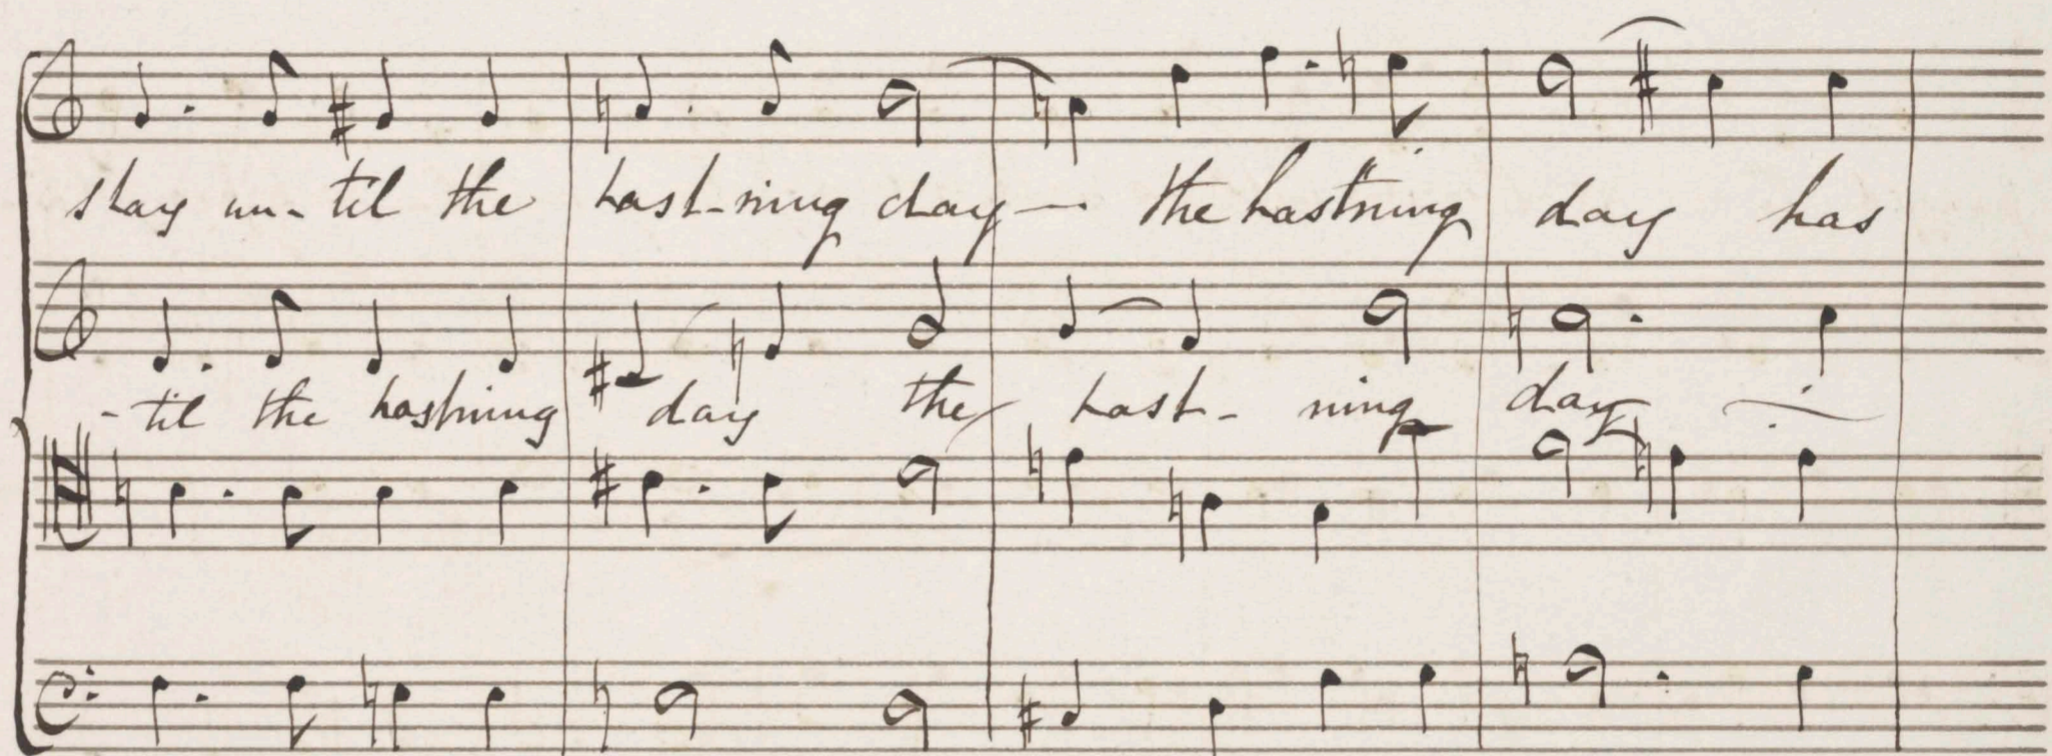 stay un-til the hast-ning day — the hastning day has
-til the hastning day the hast- ning day